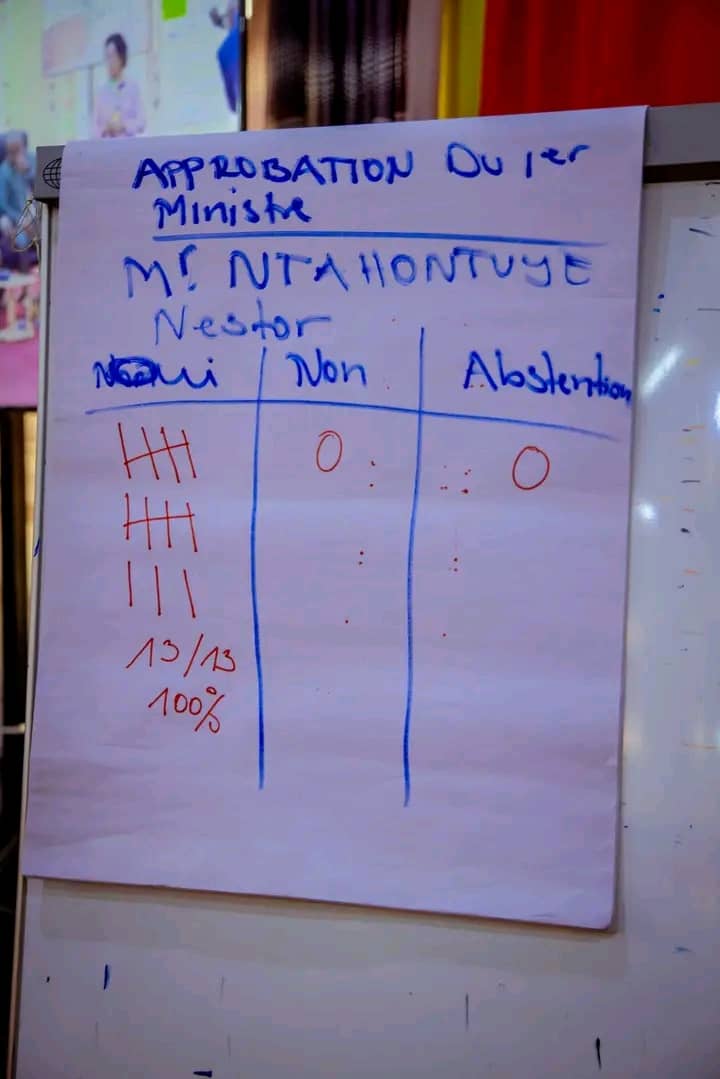 APPROBATION DU 1er
Ministre
Mr. NTAHONTUYE
Nestor
Oui Non Abstention
0 0
13/13
100%